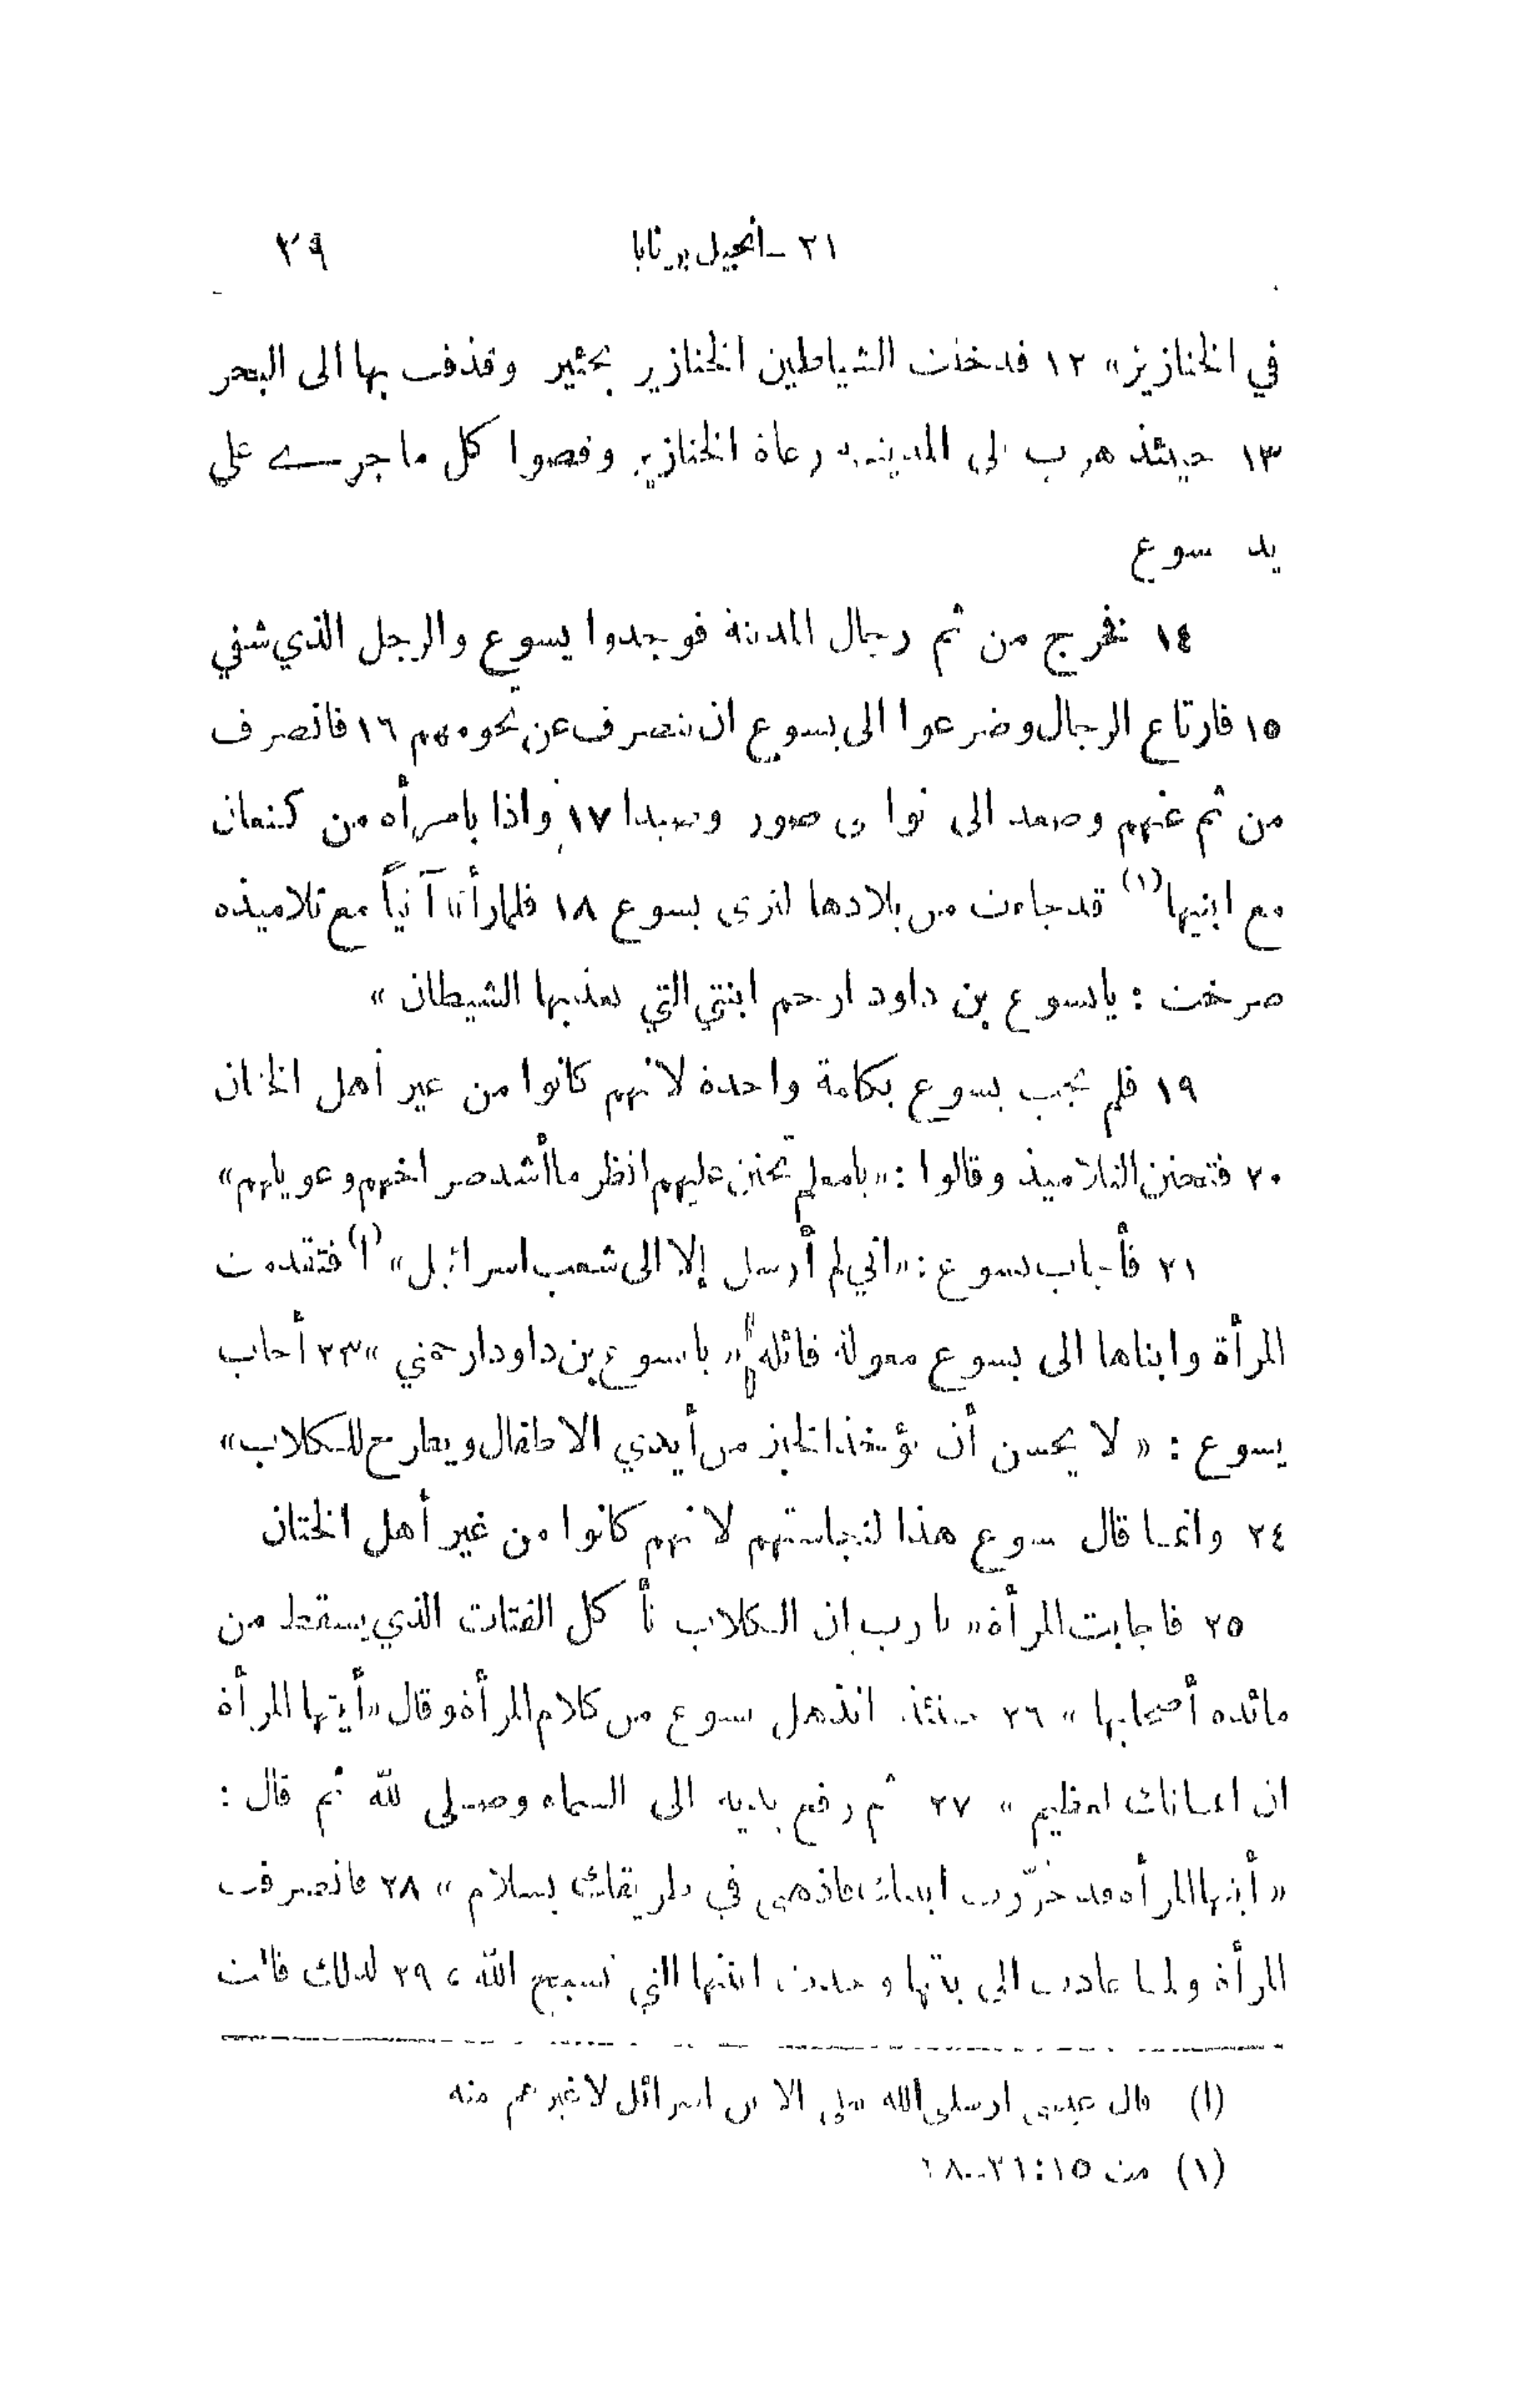 ٢١ ـ انجيل برنابا ٢٩
في الخنازير» ١٢ فدخلت الشياطين الخنازير بجئير وقذفت بها الى البحر
١٣ حينئذ هرب الى المدينة رعاة الخنازير وقصوا كل ما جرى على
يد يسوع
١٤ فخرج من ثم رجال المدينة فوجدوا يسوع والرجل الذي شفي
١٥ فارتاع الرجال وضرعوا الى يسوع ان ينصرف عن تخومهم ١٦ فانصرف
من ثم عنهم وصعد الى نواحي صور وصيدا ١٧ واذا بامرأة من كنعان
مع ابنيها (١) قد جاءت من بلادها لترى يسوع ١٨ فلما رأته آتياً مع تلاميذه
صرخت : يايسوع بن داود ارحم ابنتي التي يعذبها الشيطان »
١٩ فلم يجب يسوع بكلمة واحدة لانهم كانوا من غير أهل الختان
٢٠ فتحنن التلاميذ وقالوا : «يامعلم تحنن عليهم انظر ما أشد صراخهم وعويلهم»
٢١ فأجاب يسوع : «اني لم أرسل إلا الى شعب اسرائيل» (ا) فتقدمت
المرأة وابناها الى يسوع معولة قائلة « يايسوع بن داود ارحمني » ٢٣ أجاب
يسوع : « لا يحسن أن يؤخذ الخبز من أيدي الاطفال ويطرح للكلاب»
٢٤ وانما قال يسوع هذا لنجاستهم لانهم كانوا من غير أهل الختان
٢٥ فاجابت المرأة « يارب ان الكلاب تأكل الفتات الذي يسقط من
مائدة أصحابها » ٢٦ حينئذ انذهل يسوع من كلام المرأة وقال «أيتها المرأة
ان ايمانك لعظيم » ٢٧ ثم رفع يديه الى السماء وصلى لله ثم قال :
« أيتها المرأة قد حُرّرت ابنتك فاذهبي في طريقك بسلام » ٢٨ فانصرفت
المرأة ولما عادت الى بيتها وجدت ابنتها التي تسبح الله ، ٢٩ لذلك قالت
(ا) قال عيسى ارسلى الله اسرائل لا غير منه
(١) مت ١٥:٢١ــ